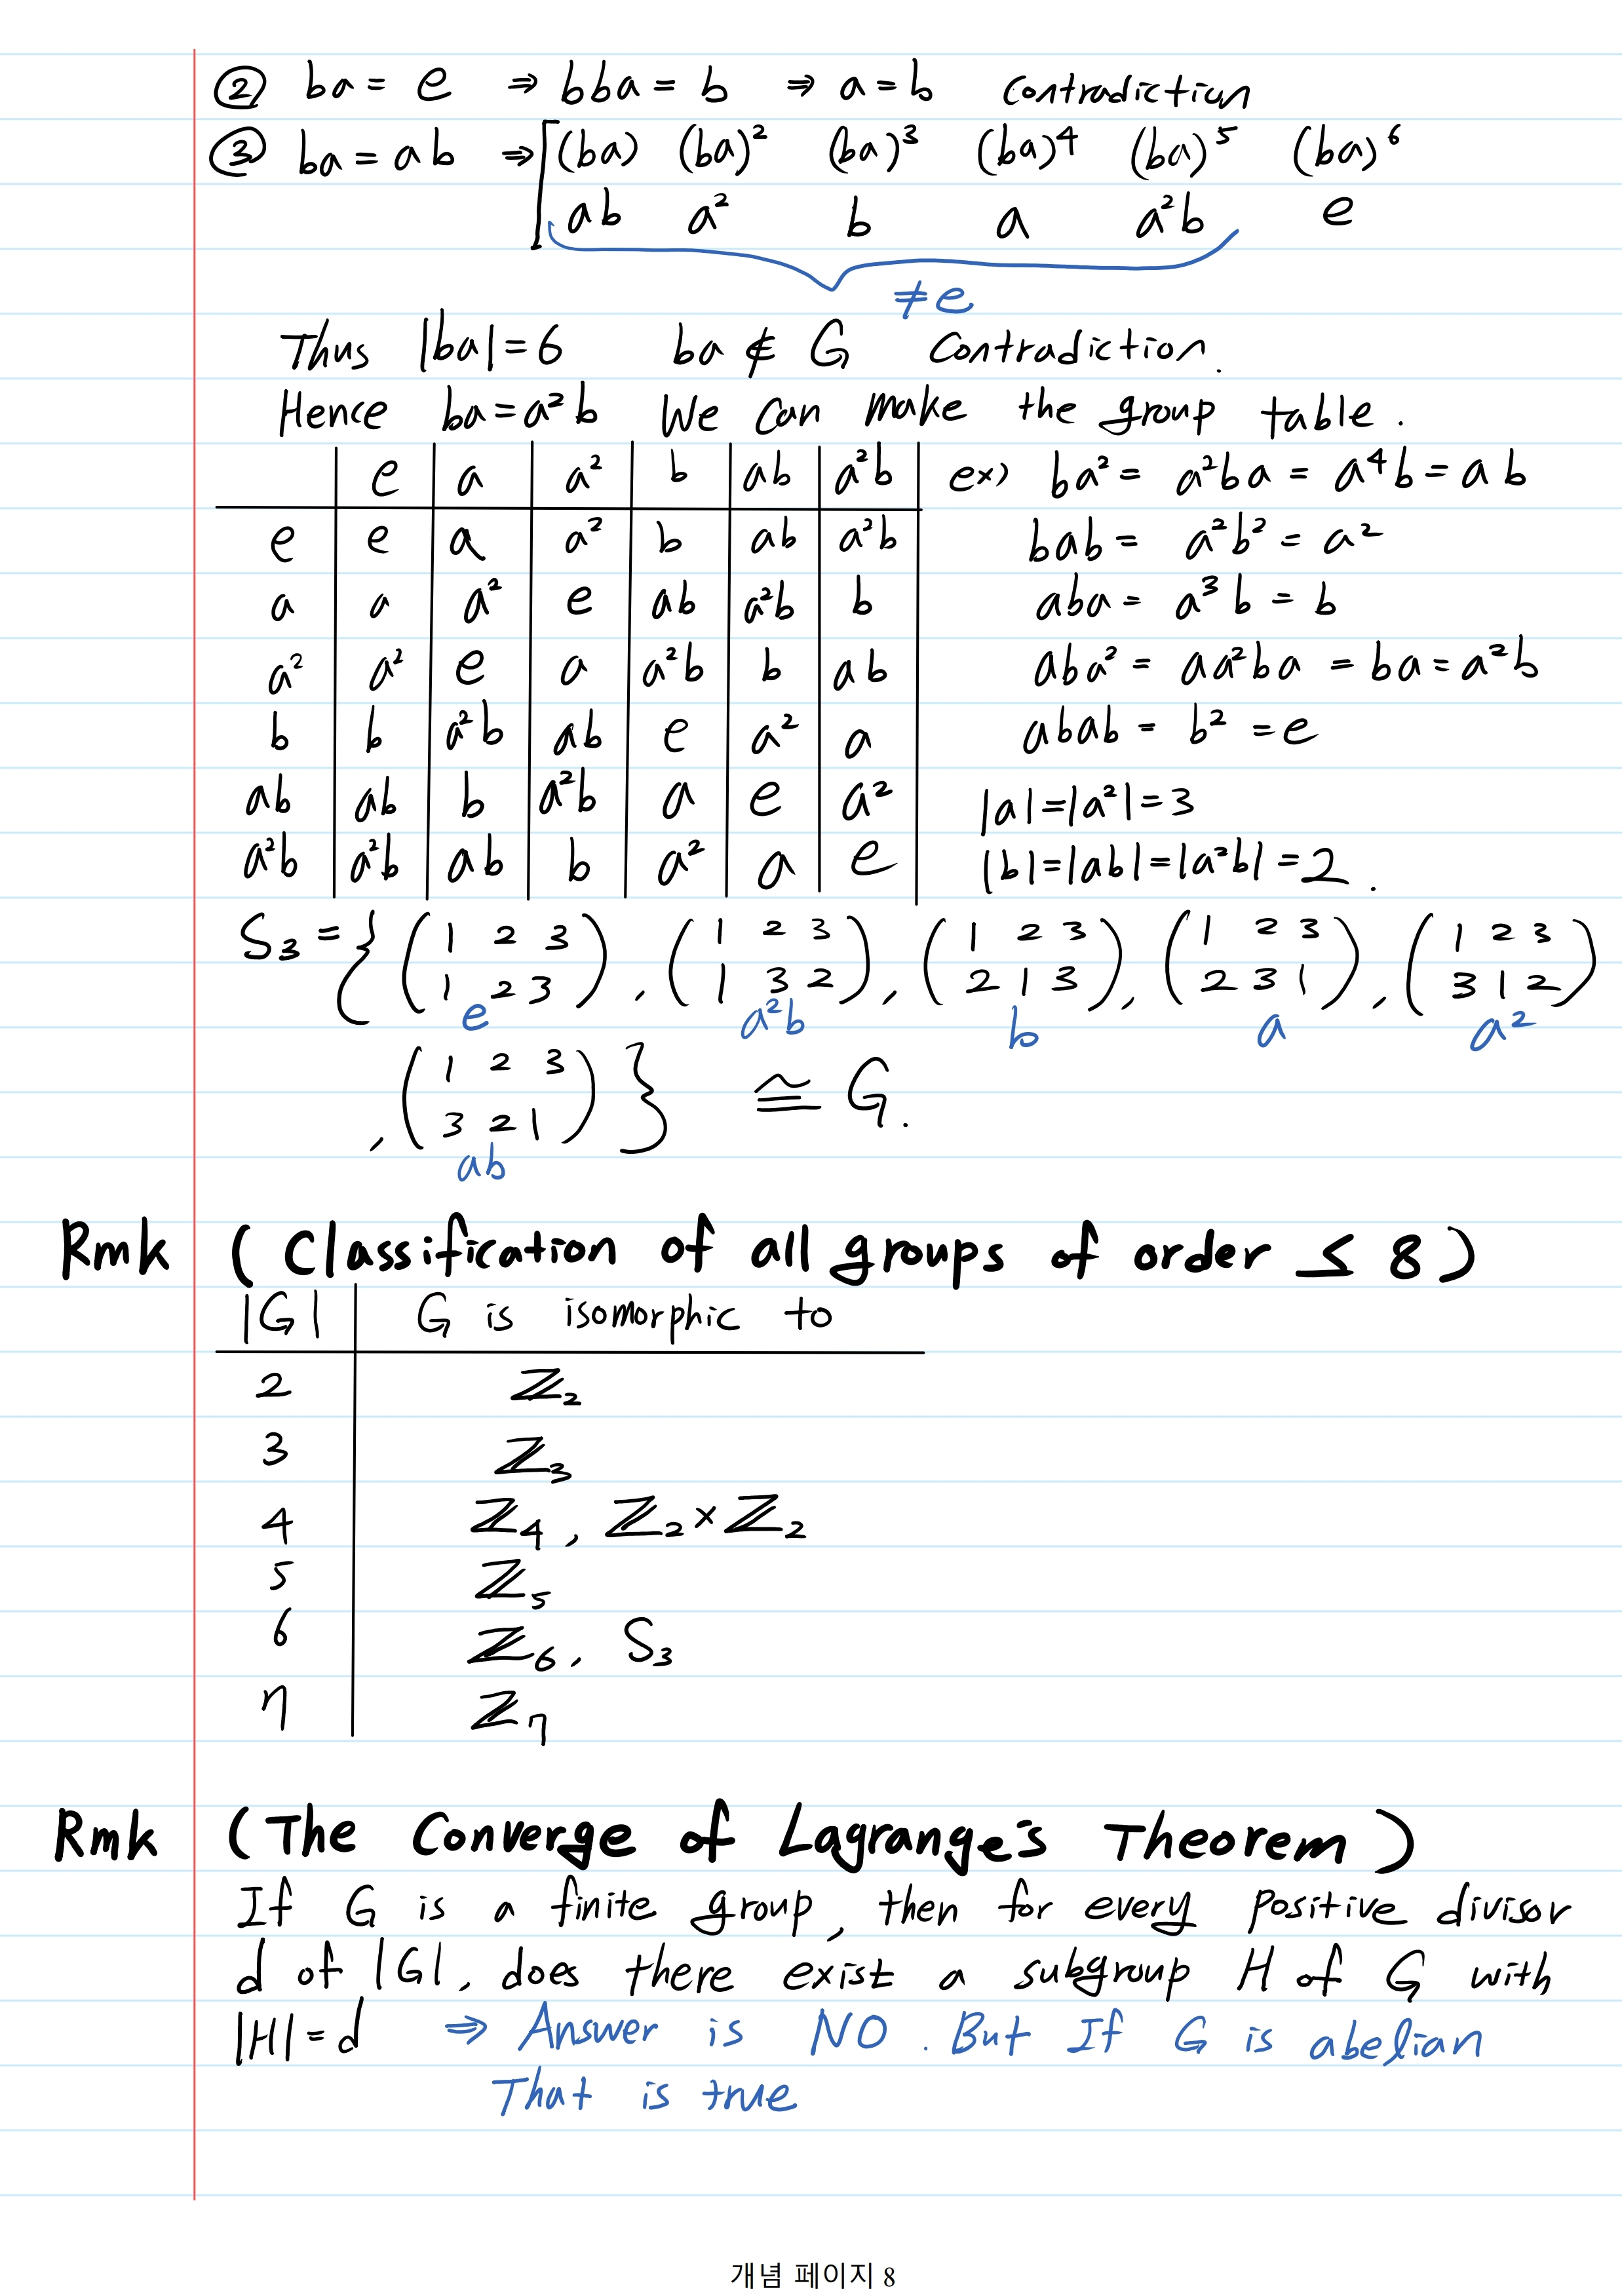 ② ba = e ⇒ bba = b ⇒ a = b Contradiction
③ ba = ab ⇒ [ (ba) (ba)² (ba)³ (ba)⁴ (ba)⁵ (ba)⁶
ab a² b a a²b e
≠ e
Thus |ba| = 6 ba ∉ G Contradiction.
Hence ba = a²b We can make the group table.
e a a² b ab a²b ex) ba² = a²ba = a⁴b = ab
e e a a² b ab a²b bab = a²b² = a²
a a a² e ab a²b b aba = a³b = b
a² a² e a a²b b ab aba² = aa²ba = ba = a²b
b b a²b ab e a² a abab = b² = e
ab ab b a²b a e a² |a| = |a²| = 3
a²b a²b ab b a² a e |b| = |ab| = |a²b| = 2.
S₃ = { (1 2 3 / 1 2 3), (1 2 3 / 1 3 2), (1 2 3 / 2 1 3), (1 2 3 / 2 3 1), (1 2 3 / 3 1 2)
e a²b b a a²
, (1 2 3 / 3 2 1) } ≅ G.
ab
Rmk (Classification of all groups of order ≤ 8)
|G| G is isomorphic to
2 ℤ₂
3 ℤ₃
4 ℤ₄, ℤ₂ × ℤ₂
5 ℤ₅
6 ℤ₆, S₃
7 ℤ₇
Rmk (The Converge of Lagrange's Theorem)
If G is a finite group, then for every positive divisor
d of |G|, does there exist a subgroup H of G with
|H| = d ⇒ Answer is NO. But If G is abelian
That is true
개념 페이지 8